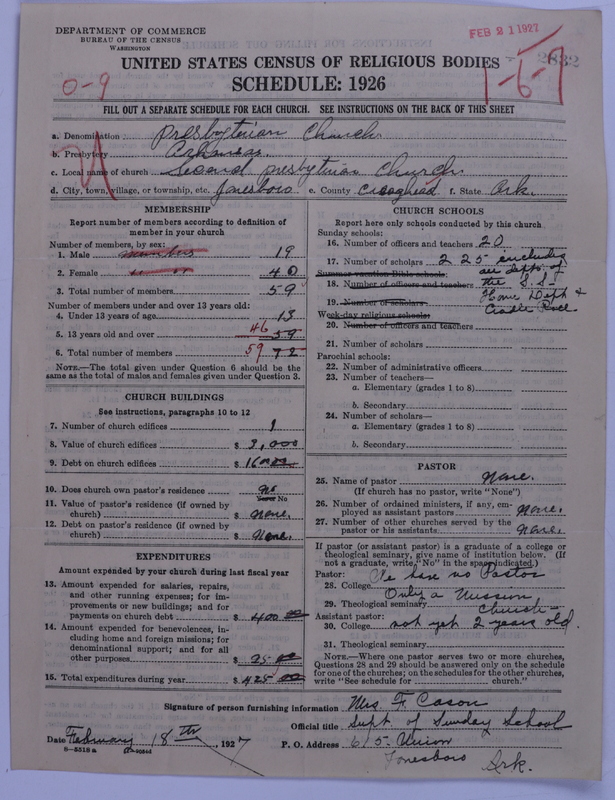 DEPARTMENT OF COMMERCE
BUREAU OF THE CENSUS
WASHINGTON
FEB 21 1927
2832
UNITED STATES CENSUS OF RELIGIOUS BODIES
SCHEDULE: 1926
0-9
1-6-7
FILL OUT A SEPARATE SCHEDULE FOR EACH CHURCH. SEE INSTRUCTIONS ON THE BACK OF THIS SHEET
a. Denomination Presbyterian Church
b. Presbytery Arkansas.
c. Local name of church Second Presbyterian Church
d. City, town, village, or township, etc. Jonesboro e. County Craighead f. State Ark.
MEMBERSHIP
Report number of members according to definition of member in your church
Number of members, by sex:
1. Male 19
2. Female 40
3. Total number of members 59
Number of members under and over 13 years old:
4. Under 13 years of age 13
5. 13 years old and over 46 59
6. Total number of members 59 72
NOTE.—The total given under Question 6 should be the same as the total of males and females given under Question 3.
CHURCH BUILDINGS
See instructions, paragraphs 10 to 12
7. Number of church edifices 1
8. Value of church edifices $ 3,000
9. Debt on church edifices $
10. Does church own pastor's residence No
Yes or No
11. Value of pastor's residence (if owned by church) $ None.
12. Debt on pastor's residence (if owned by church) $ None.
EXPENDITURES
Amount expended by your church during last fiscal year
13. Amount expended for salaries, repairs, and other running expenses; for improvements or new buildings; and for payments on church debt $ 400 00
14. Amount expended for benevolences, including home and foreign missions; for denominational support; and for all other purposes $ 25.00
15. Total expenditures during year $ 425 00
CHURCH SCHOOLS
Report here only schools conducted by this church
Sunday schools:
16. Number of officers and teachers 20
17. Number of scholars 225 including
Summer vacation Bible schools: all Dept's of
18. Number of officers and teachers the S.S-
19. Number of scholars Home Dept &
Week-day religious schools: Cradle Roll
20. Number of officers and teachers
21. Number of scholars
Parochial schools:
22. Number of administrative officers
23. Number of teachers—
a. Elementary (grades 1 to 8)
b. Secondary
24. Number of scholars—
a. Elementary (grades 1 to 8)
b. Secondary
PASTOR
25. Name of pastor None.
(If church has no pastor, write "None")
26. Number of ordained ministers, if any, employed as assistant pastors None.
27. Number of other churches served by the pastor or his assistants None.
If pastor (or assistant pastor) is a graduate of a college or theological seminary, give name of institution below. (If not a graduate, write "No" in the space indicated.)
Pastor: We have no Pastor
28. College Only a Mission
29. Theological seminary Church-
Assistant pastor:
30. College not yet 2 years old.
31. Theological seminary
NOTE.—Where one pastor serves two or more churches, Questions 28 and 29 should be answered only on the schedule for one of the churches; on the schedules for the other churches, write "See schedule for ______ church."
Signature of person furnishing information Mrs. F. Cason
Official title Supt. of Sunday School
Date February 18th, 1927 P. O. Address 615- Union
Jonesboro Ark.
8—5518 a